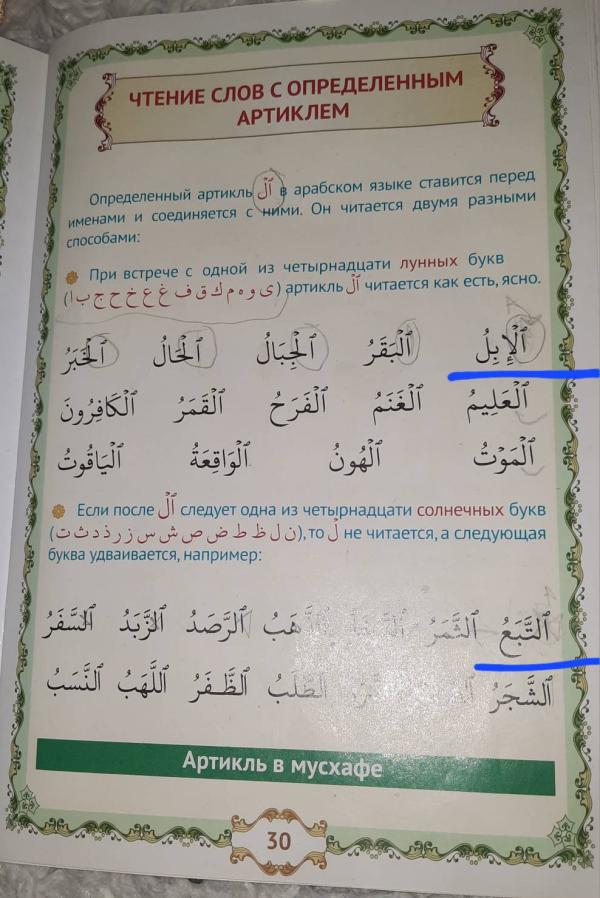 ЧТЕНИЕ СЛОВ С ОПРЕДЕЛЕННЫМ
АРТИКЛЕМ
Определенный артикль ٱلْ в арабском языке ставится перед
именами и соединяется с ними. Он читается двумя разными
способами:
При встрече с одной из четырнадцати лунных букв
(ى و ه م ك ق ف غ ع خ ح ج ب ا) артикль ٱلْ читается как есть, ясно.
ٱلْإِبِلُ ٱلْبَقَرُ ٱلْجِبَالُ ٱلْحَالُ ٱلْخَبَرُ
ٱلْعَلِيمُ ٱلْغَنَمُ ٱلْفَرَحُ ٱلْقَمَرُ ٱلْكَافِرُونَ
ٱلْمَوْتُ ٱلْهُونُ ٱلْوَاقِعَةُ ٱلْيَاقُوتُ
Если после ٱلْ следует одна из четырнадцати солнечных букв
(ن ل ظ ط ض ص ش س ز ر ذ د ث ت), то لْ не читается, а следующая
буква удваивается, например:
ٱلتَّبَعُ ٱلثَّمَرُ ٱلذَّهَبُ ٱلرَّصَدُ ٱلزَّبَدُ ٱلسَّفَرُ
ٱلشَّجَرُ ٱلطَّلَبُ ٱلظَّفَرُ ٱللَّهَبُ ٱلنَّسَبُ
Артикль в мусхафе
30